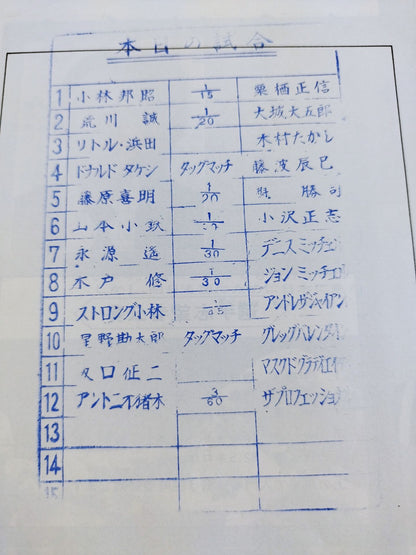 本日の試合
1 小林邦昭 1/15 栗栖正信
2 荒川 誠 1/20 大城大五郎
3 リトル・浜田 木村たかし
4 ドナルド タケシ タッグマッチ 藤波辰巳
5 藤原喜明 1/20 勝司
6 山本小鉄 小沢正志
7 永源 遥 1/30 デニスミッチェ
8 木戸 修 1/30 ジョンミッチェル
9 ストロング小林 /45 アンドレザジャイアン
10 星野勘太郎 タッグマッチ グレッグバレンタイ
11 口正二 マスクドグラディエイ
12 アントニオ猪木 3/60 ザプロフェッショ
13
14
15